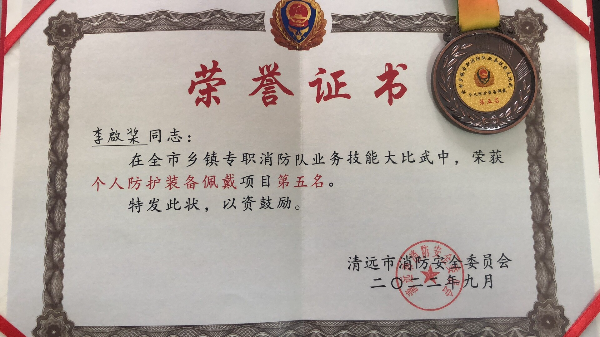 荣誉证书
李啟棨同志：
在全市乡镇专职消防队业务技能大比武中，荣获
个人防护装备佩戴项目第五名。
特发此状，以资鼓励。
清远市消防安全委员会
二〇二三年九月
第五名